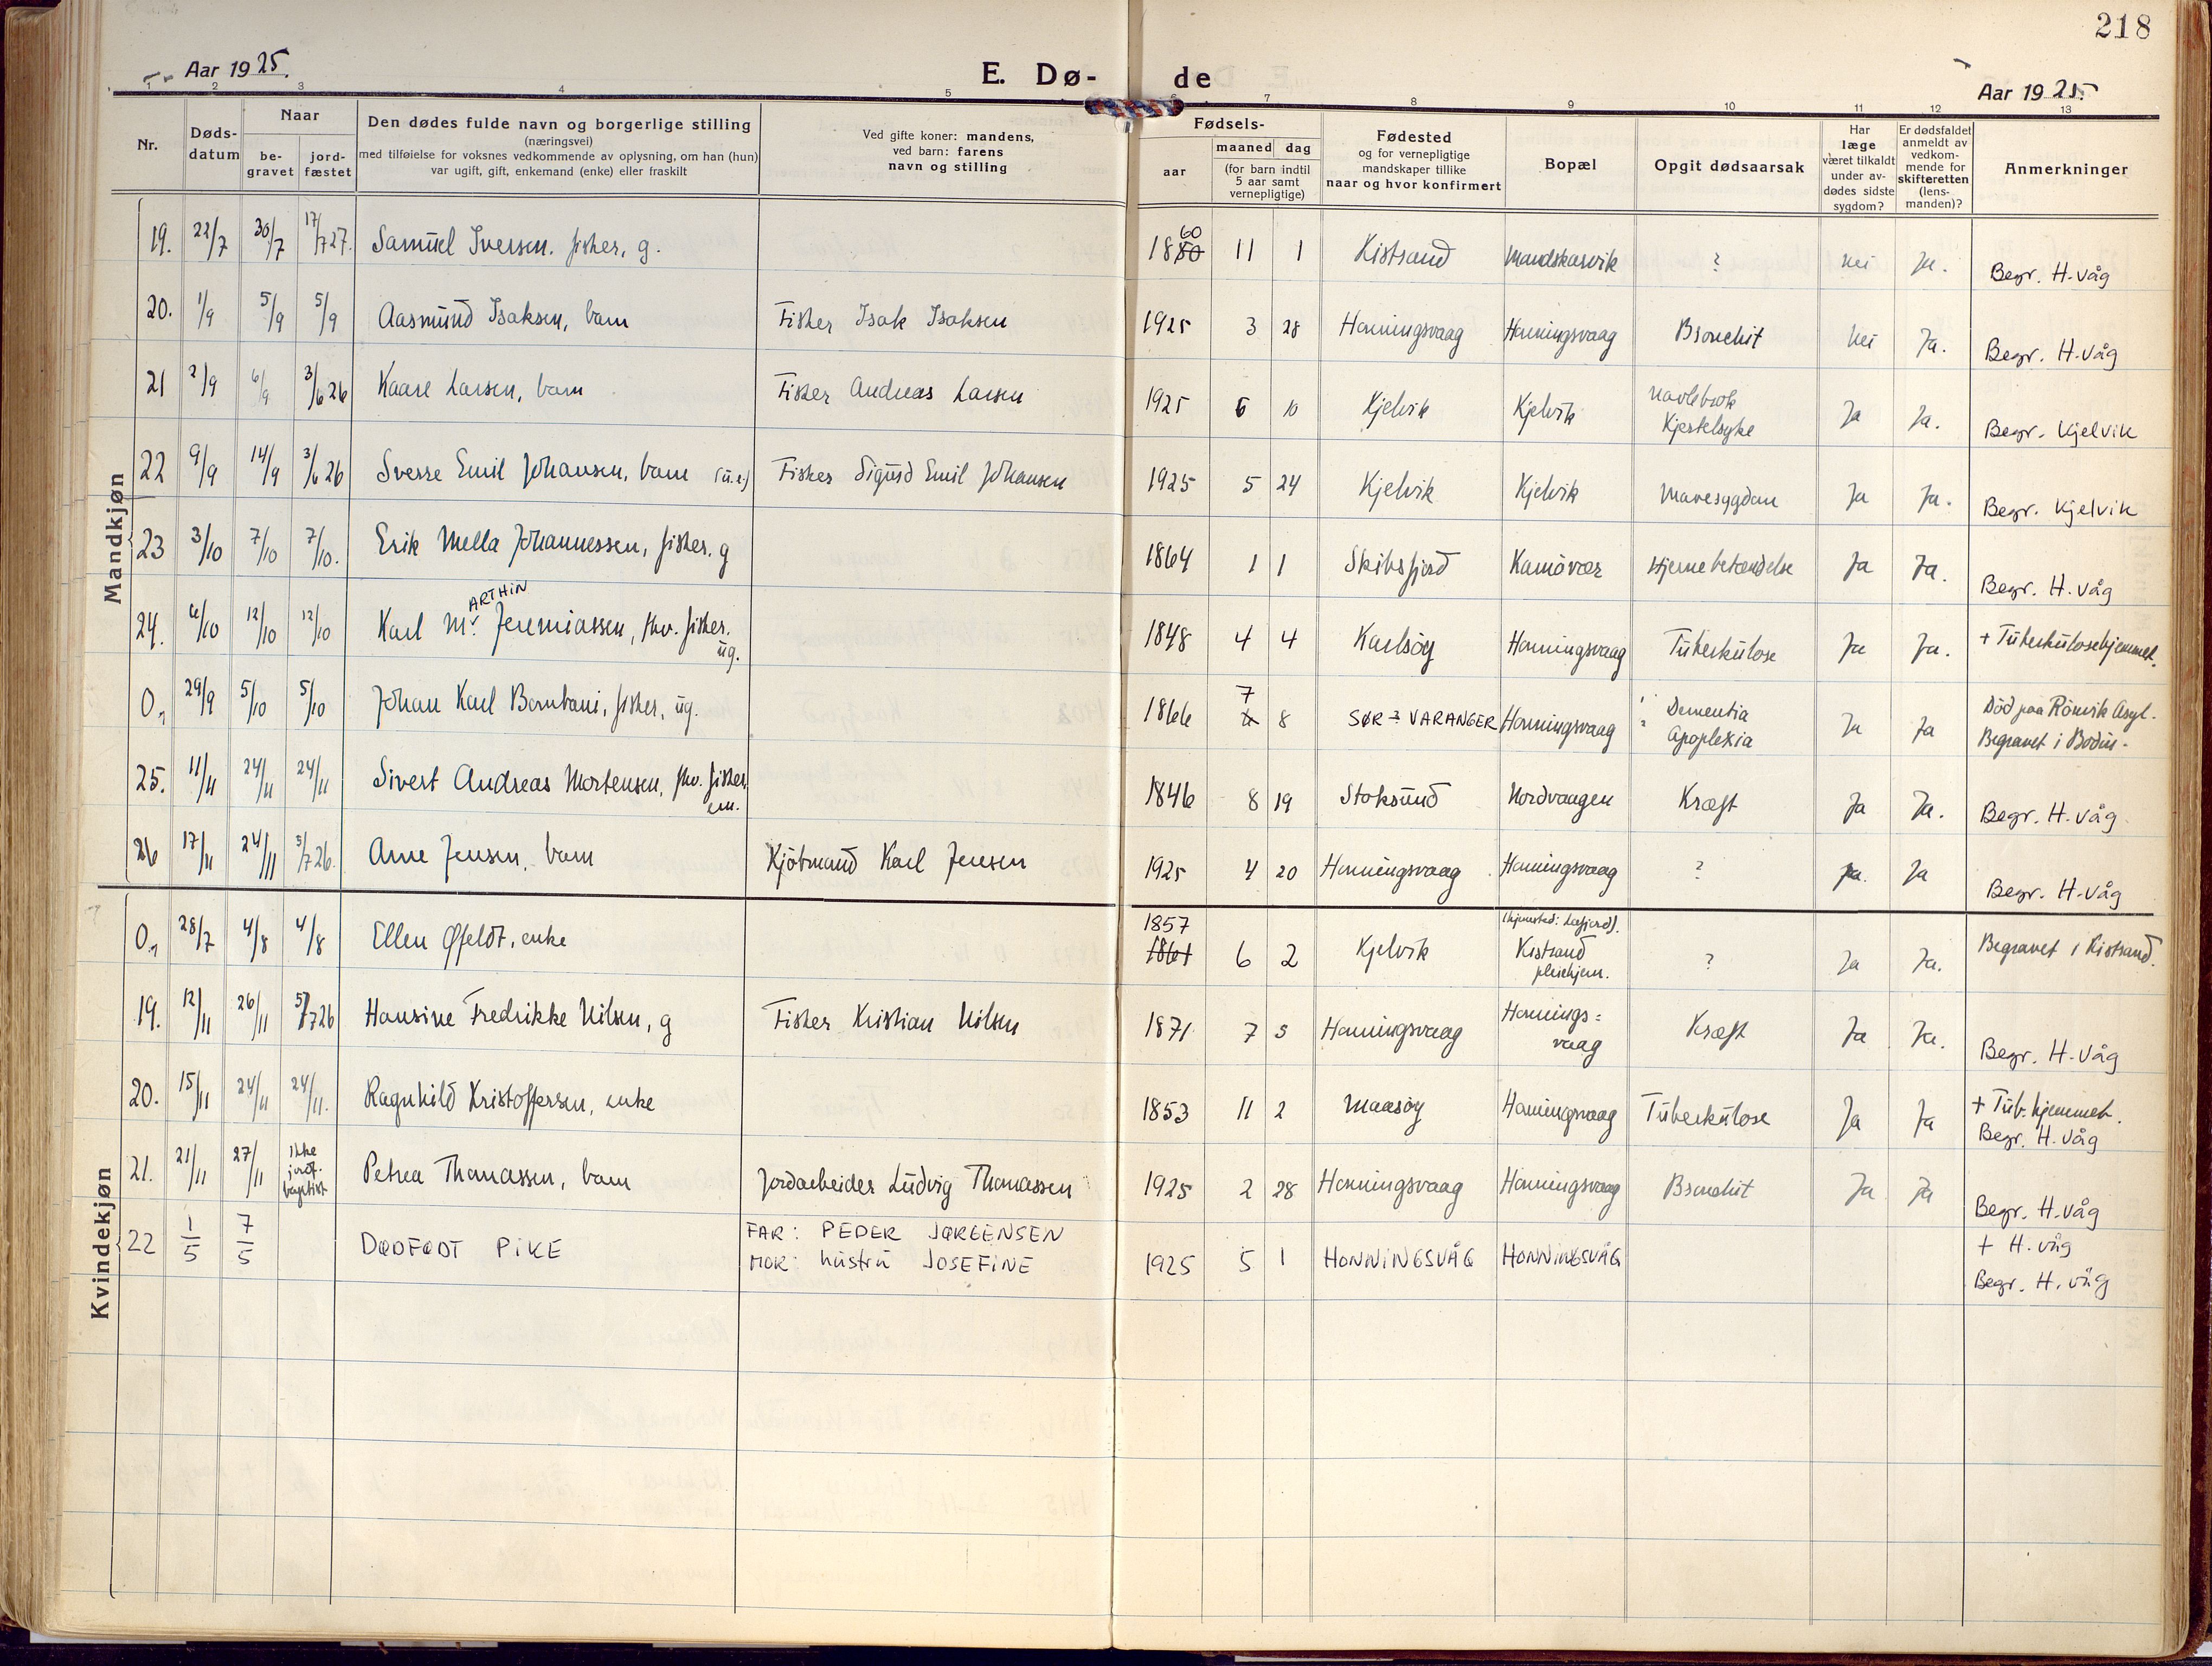 218
Aar 1925.
E. Dø-
de
Aar 1925.
1 2 3 4 5 6 7 8 9 10 11 12 13
Nr.
Døds-datum
Naar
be-gravet
jord-fæstet
Den dødes fulde navn og borgerlige stilling
(næringsvei)
med tilføielse for voksnes vedkommende av oplysning, om han (hun)
var ugift, gift, enkemand (enke) eller fraskilt
Ved gifte koner: mandens,
ved barn: farens
navn og stilling
Fødsels-
aar
maaned dag
(for barn indtil
5 aar samt
vernepligtige)
Fødested
og for vernepligtige
mandskaper tillike
naar og hvor konfirmert
Bopæl
Opgit dødsaarsak
Har
læge
været tilkaldt
under av-
dødes sidste
sygdom?
Er dødsfaldet
anmeldt av
vedkom-
mende for
skifteretten
(lens-
manden)?
Anmerkninger
Mandkjøn
19. 22/7 30/7 17/7 27. Samuel Iversen. fisker, g. 1880 60 11 1 Kistrand Mandskarvik ? nei Ja. Begr. H.våg
20. 1/9 5/9 5/9 Aasmund Isaksen, barn Fisker Isak Isaksen 1925 3 28 Honningsvaag Honningsvaag Bronchit Nei Ja. Begr. H.våg
21 2/9 6/9 3/6 26 Kaare Larsen, barn Fisker Andreas Larsen 1925 6 10 Kjelvik Kjelvik Navlebrok Kjertelsyke Ja Ja. Begr. Kjelvik
22 9/9 14/9 3/6 26 Sverre Emil Johansen, barn (u.e.) Fisker Sigurd Emil Johansen 1925 5 24 Kjelvik Kjelvik Mavesygdom Ja Ja. Begr. Kjelvik
23 3/10 7/10 7/10. Erik Mella Johannessen, fisker. g 1864 1 1 Skibsfjord Kamøvær Hjernebetændelse Ja Ja. Begr. H.våg
24. 6/10 12/10 12/10 Karl M. ARTHIN Jeremiassen, fhv. fisker. ug. 1848 4 4 Karlsøy Honningsvaag Tuberkulose Ja Ja. + Tuberkulosehjemmet.
0. 29/9 5/10 5/10 Johan Karl Bombani, fisker, ug. 1866 7 8 SØR-VARANGER Honningsvaag Dementia Apoplexia Ja Ja Død paa Rønvik Asyl. Begravet i Bodin.
25. 11/11 24/11 24/11 Sivert Andreas Mortensen, fhv. fisker em. 1846 8 19 Stoksund Nordvaagen Kræft Ja Ja. Begr. H.våg
26 17/11 24/11 5/7 26. Arne Jensen, barn Kjøbmand Karl Jensen 1925 4 20 Honningsvaag Honningsvaag ? Ja. Ja Begr. H.våg
Kvindekjøn
0. 28/7 4/8 4/8 Ellen Øfeldt, enke 1857 1861 6 2 Kjelvik (hjemsted: Lafjord). Kistrand pleiehjem. ? Ja Ja. Begravet i Kistrand.
19. 12/11 26/11 5/7 26 Hansine Fredrikke Nilsen, g Fisker Kristian Nilsen 1871 7 5 Honningsvaag Honnings=vaag Kræft Ja Ja. Begr. H.våg
20. 15/11 24/11 24/11. Ragnhild Kristoffersen, enke 1853 11 2 Maasøy Honningsvaag Tuberkulose Ja Ja + Tub.hjemmet. Begr. H.våg
21. 21/11 27/11 Ikke jordf. baptist Petrea Thomassen, barn Jordarbeider Ludvig Thomassen 1925 2 28 Honningsvaag Honningsvaag Bronchit Ja Ja Begr. H.våg
22 1/5 7/5 DØDFØDT PIKE FAR: PEDER JØRGENSEN MOR: hustru JOSEFINE 1925 5 1 HONNINGSVÅG HONNINGSVÅG + H.våg Begr. H.våg